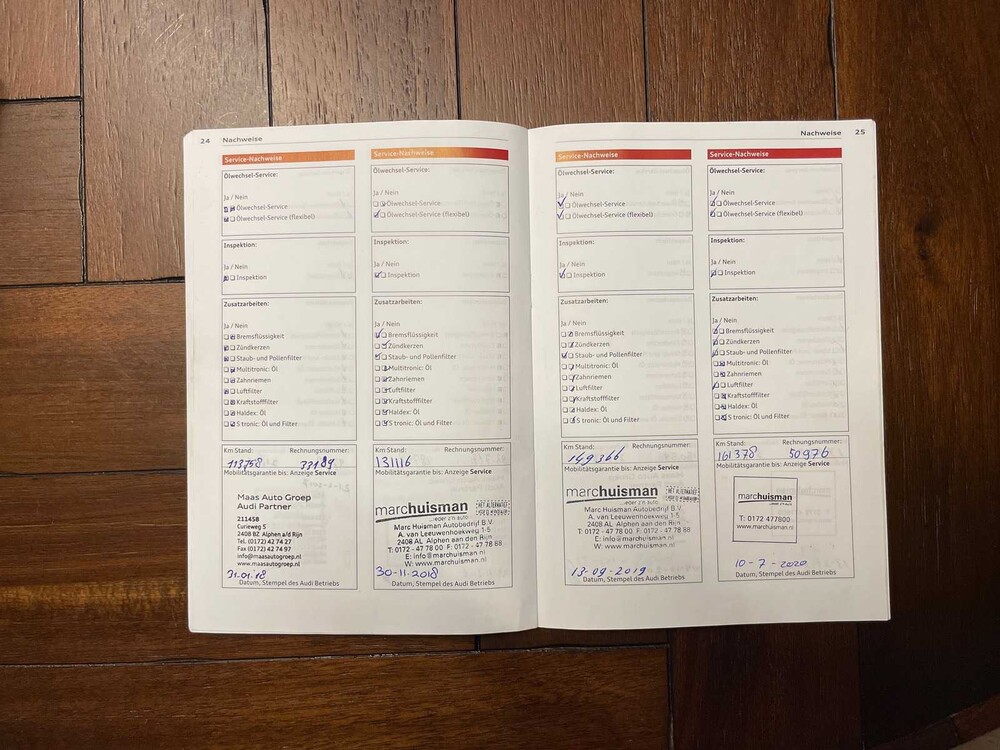 24 Nachweise
Service-Nachweise
Ölwechsel-Service:
Ja / Nein
Ölwechsel-Service
Ölwechsel-Service (flexibel)
Inspektion:
Ja / Nein
Inspektion
Zusatzarbeiten:
Ja / Nein
Bremsflüssigkeit
Zündkerzen
Staub- und Pollenfilter
Multitronic: Öl
Zahnriemen
Luftfilter
Kraftstofffilter
Haldex: Öl
S tronic: Öl und Filter
Km Stand: Rechnungsnummer:
113758 33189
Mobilitätsgarantie bis: Anzeige Service
Maas Auto Groep
Audi Partner
211458
Curieweg 5
2408 BZ Alphen a/d Rijn
Tel. (0172) 42 74 27
Fax (0172) 42 74 97
info@maasautogroep.nl
www.maasautogroep.nl
31.01.18
Datum, Stempel des Audi Betriebs
Service-Nachweise
Ölwechsel-Service:
Ja / Nein
Ölwechsel-Service
Ölwechsel-Service (flexibel)
Inspektion:
Ja / Nein
Inspektion
Zusatzarbeiten:
Ja / Nein
Bremsflüssigkeit
Zündkerzen
Staub- und Pollenfilter
Multitronic: Öl
Zahnriemen
Luftfilter
Kraftstofffilter
Haldex: Öl
S tronic: Öl und Filter
Km Stand: Rechnungsnummer:
131116
Mobilitätsgarantie bis: Anzeige Service
marchuisman
Marc Huisman Autobedrijf B.V.
A. van Leeuwenhoekweg 1-5
2408 AL Alphen aan den Rijn
T: 0172 - 47 78 00 F: 0172 - 47 78 88
E: info@marchuisman.nl
W: www.marchuisman.nl
30-11-2018
Datum, Stempel des Audi Betriebs
Nachweise 25
Service-Nachweise
Ölwechsel-Service:
Ja / Nein
Ölwechsel-Service
Ölwechsel-Service (flexibel)
Inspektion:
Ja / Nein
Inspektion
Zusatzarbeiten:
Ja / Nein
Bremsflüssigkeit
Zündkerzen
Staub- und Pollenfilter
Multitronic: Öl
Zahnriemen
Luftfilter
Kraftstofffilter
Haldex: Öl
S tronic: Öl und Filter
Km Stand: Rechnungsnummer:
149366
Mobilitätsgarantie bis: Anzeige Service
marchuisman
Marc Huisman Autobedrijf B.V.
A. van Leeuwenhoekweg 1-5
2408 AL Alphen aan den Rijn
T: 0172 - 47 78 00 F: 0172 - 47 78 88
E: info@marchuisman.nl
W: www.marchuisman.nl
13-09-2019
Datum, Stempel des Audi Betriebs
Service-Nachweise
Ölwechsel-Service:
Ja / Nein
Ölwechsel-Service
Ölwechsel-Service (flexibel)
Inspektion:
Ja / Nein
Inspektion
Zusatzarbeiten:
Ja / Nein
Bremsflüssigkeit
Zündkerzen
Staub- und Pollenfilter
Multitronic: Öl
Zahnriemen
Luftfilter
Kraftstofffilter
Haldex: Öl
S tronic: Öl und Filter
Km Stand: Rechnungsnummer:
161378 50976
Mobilitätsgarantie bis: Anzeige Service
marchuisman
T: 0172 477800
www.marchuisman.nl
10-7-2020
Datum, Stempel des Audi Betriebs